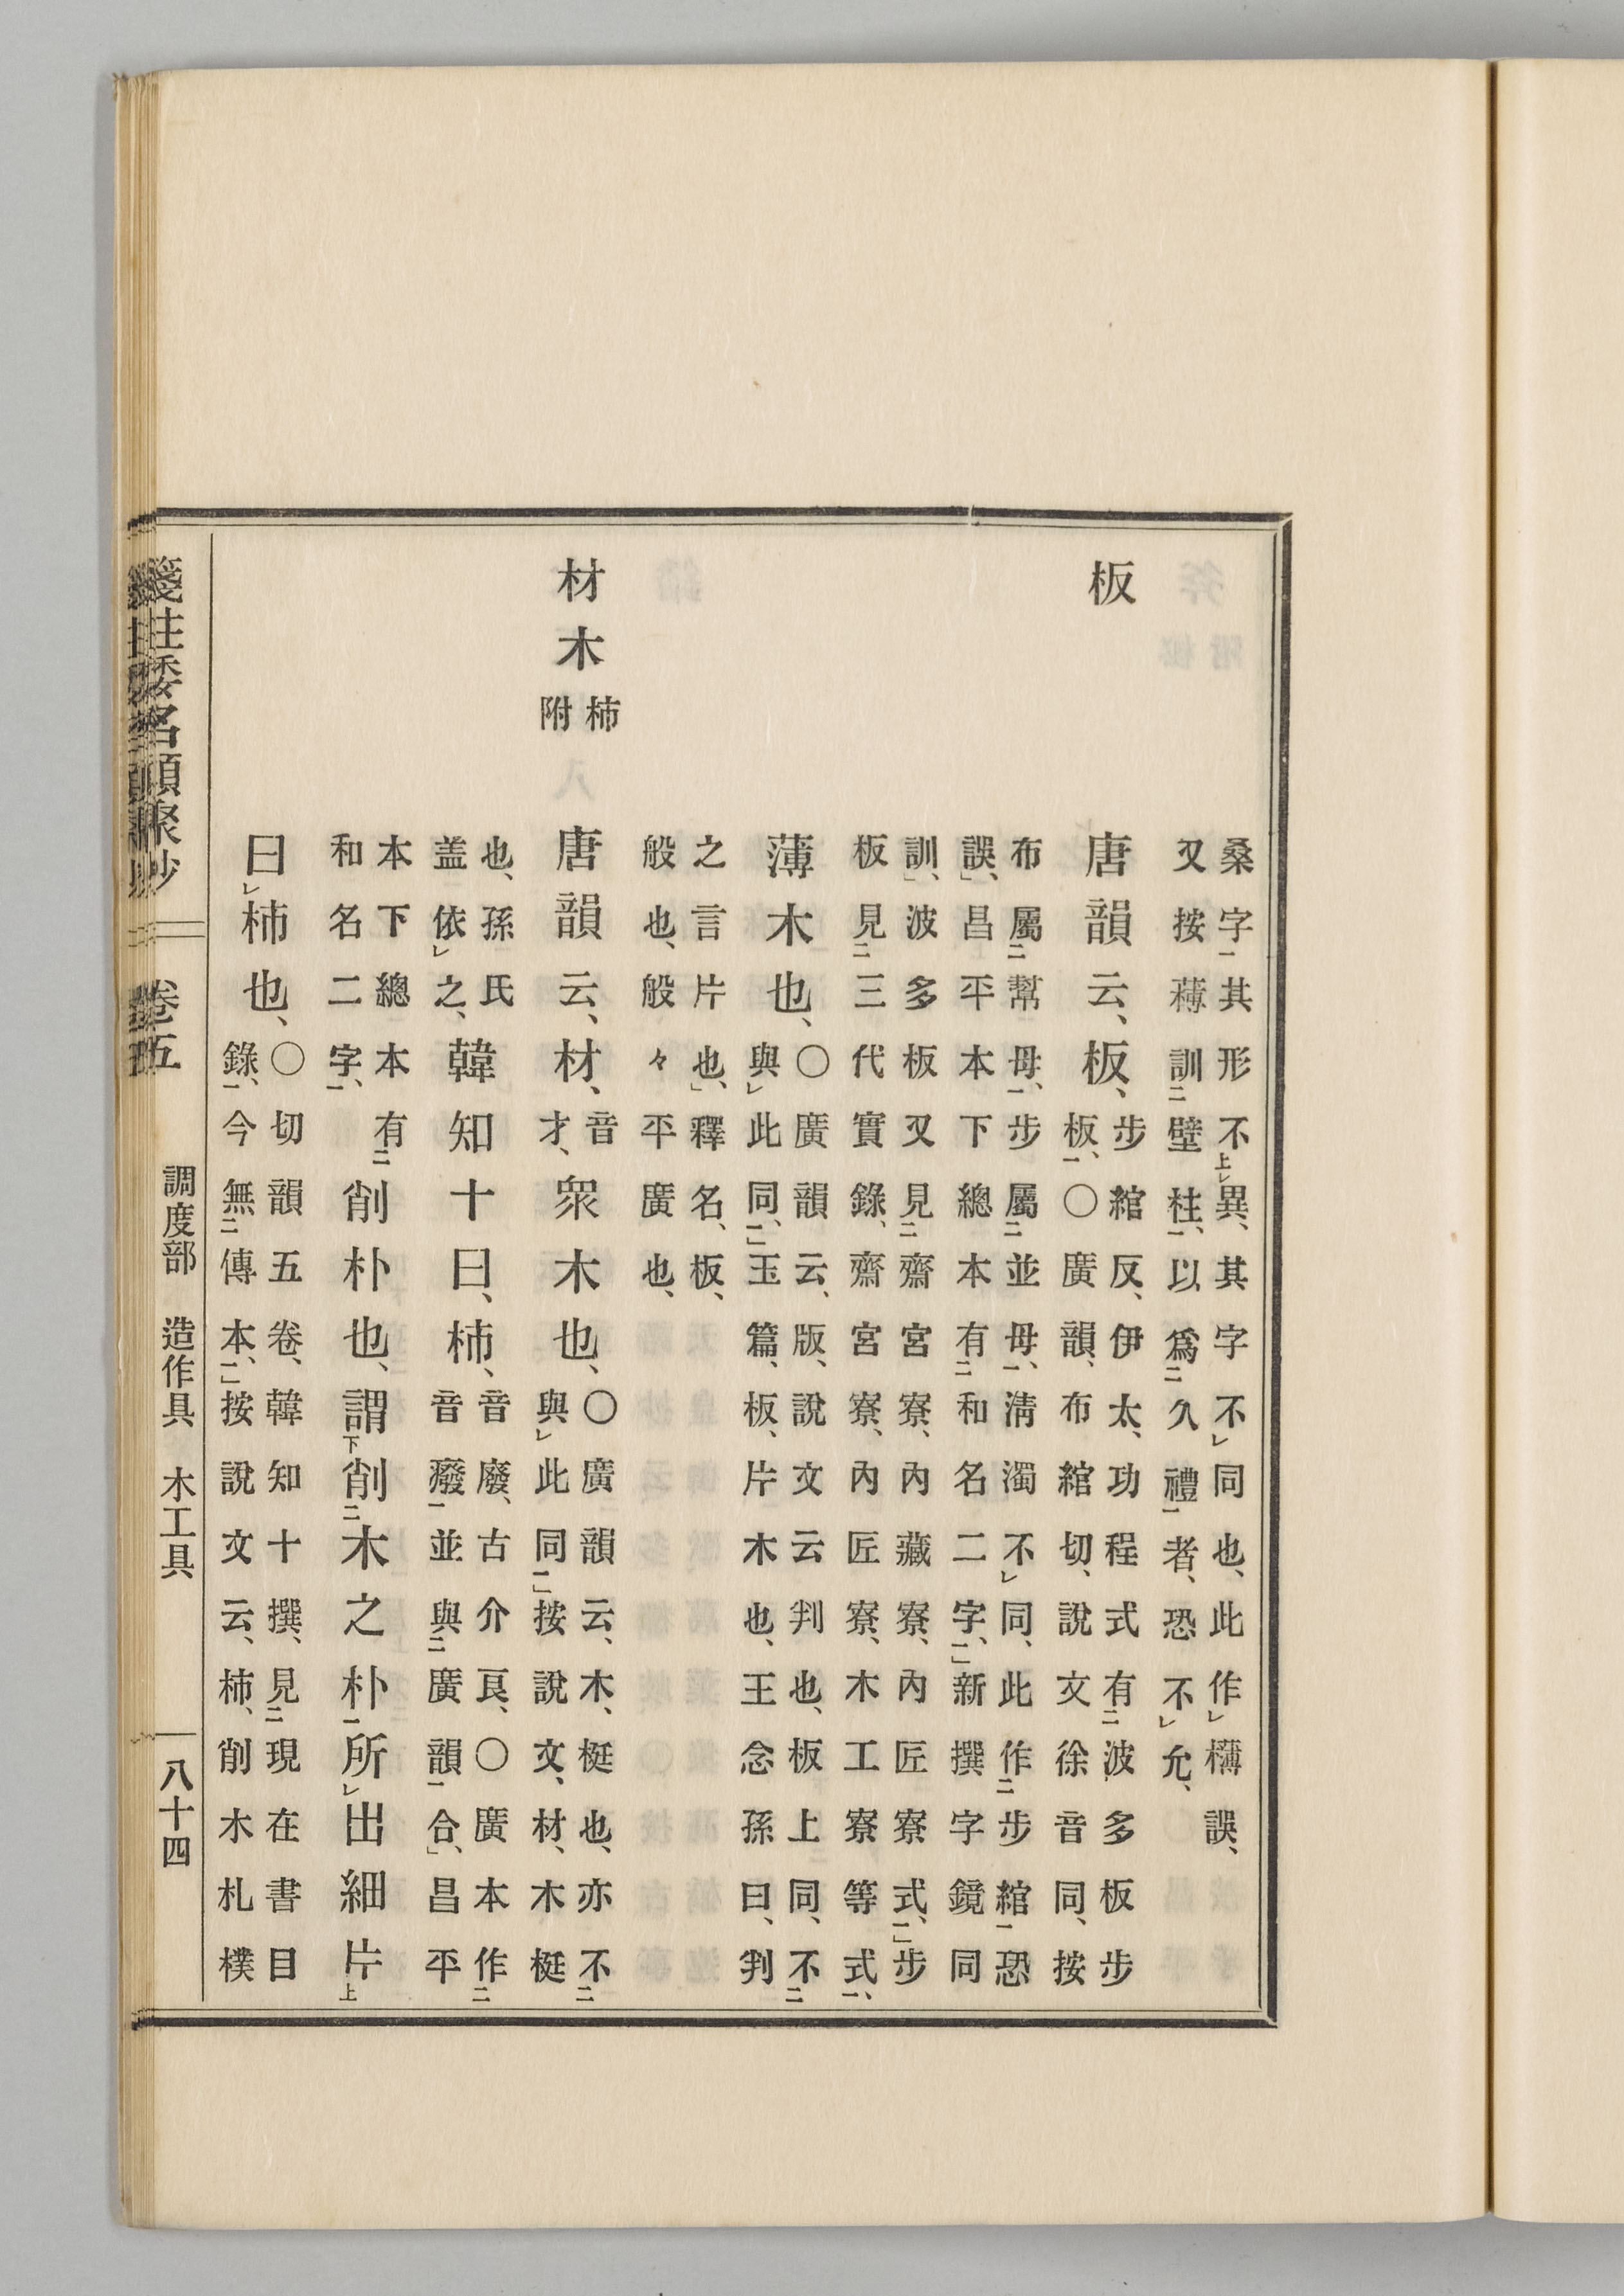 桑字一其形不上レ異、其字不レ同也、此作レ欂誤、
又按薄訓二壁柱一、以爲二久禮一者、恐不レ允、
板
唐韻云、板、
步綰反、伊太、功程式有二波多板步
板一、〇廣韻、布綰切、說文徐音同、按
布屬二幫母一、步屬二並母一、淸濁不レ同、此作二步綰一恐
誤、」昌平本下總本有二和名二字一、」新撰字鏡同
訓、」波多板又見二齋宮寮、內藏寮、內匠寮式一、」步
板見二三代實錄、齋宮寮、內匠寮、木工寮等式一、
薄木也、
〇廣韻云、版、說文云判也、板上同、不二
與レ此同一、」玉篇、板、片木也、王念孫曰、判
之言片也、」釋名、板、
般也、般々平廣也、
材木
柹
附
唐韻云、材、
音
才、
衆木也、
〇廣韻云、木、梃也、亦不二
與レ此同一、」按說文、材、木梃
也、孫氏
盖依レ之、
韓知十曰、柹、
音廢、古介良、〇廣本作二
音癈一並與二廣韻一合、」昌平
本下總本有二
和名二字一、
削朴也、謂下削二木之朴一所レ出細片上
曰レ柹也、
〇切韻五卷、韓知十撰、見二現在書目
錄一、今無二傳本一、」按說文云、柹、削木札樸
箋注倭名類聚抄 卷五 調度部 造作具 木工具 八十四